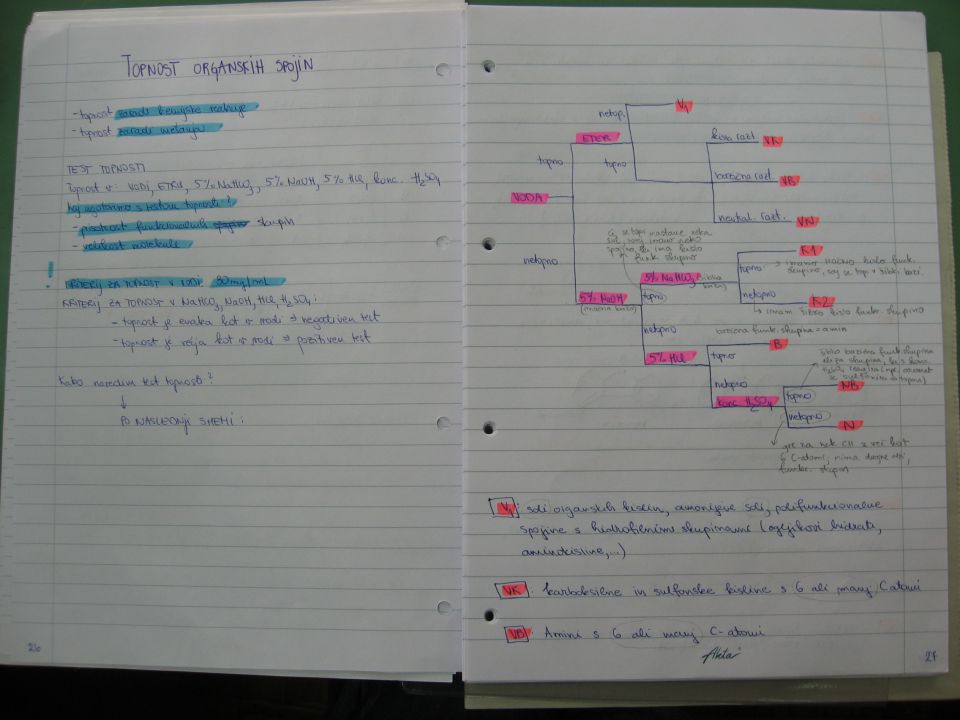 TOPNOST ORGANSKIH SPOJIN
- topnost zaradi kemijske reakcije
- topnost zaradi mešanja
TEST TOPNOSTI
Topnost v: VODI, ETRU, 5% NaHCO3, 5% NaOH, 5% HCl, konc. H2SO4
Kaj ugotovimo s testom topnosti?
- prisotnost funkcionalnih skupin
- velikost molekule
! KRITERIJ ZA TOPNOST V VODI: 30 mg/mL
KRITERIJ ZA TOPNOST V NaHCO3, NaOH, HCl, H2SO4:
- topnost je enaka kot v vodi ⇒ negativen test
- topnost je večja kot v vodi ⇒ pozitiven test
Kako naredim test topnosti?
↓
PO NASLEDNJI SHEMI:
26
V1
netop.
kisla razt. VK
ETER
topno
topno
bazična razt. VB
VODA
nevtral. razt. VN
Če se topi nastane neka
sol, torej imamo neko
spojino, ki ima kislo
funk. skupino
K1
netopno
topno
→ imamo MOČNO kislo funk.
skupino, saj se topi v šibki bazi.
5% NaHCO3 (šibka baza)
5% NaOH
(močna baza)
topno
netopno
K2
→ imam šibko kislo funkc. skupino
netopno
bazična funk. skupina = amin
B
5% HCl
topno
šibko bazična funk. skupina
netopno
NB
konc. H2SO4
topno
netopno
N
gre za nek CH z več kot
6 C-atomi, nima druge
funkc. skupin
V1: soli organskih kislin, amonijeve soli, polifunkcionalne
spojine s hidrofilnimi skupinami (ogljikovi hidrati,
aminokisline,...)
VK: karboksilne in sulfonske kisline s 6 ali manj C atomi
VB: Amini s 6 ali manj C-atomi
27